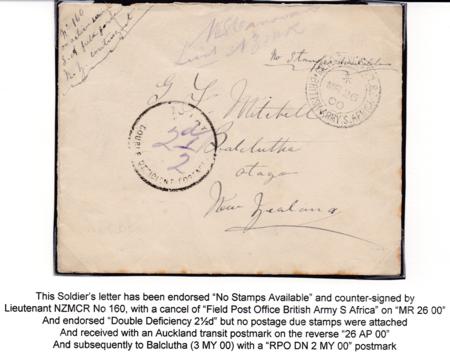 Nº 160
N. Z. Contingent
No Stamps Available
FIELD POST OFFICE
BRITISH ARMY S. AFRICA
MR 26
00
G F Mitchell
Balclutha
Otago
New Zealand
DOUBLE DEFICIENT POSTAGE
2½
This Soldier's letter has been endorsed “No Stamps Available” and counter-signed by
Lieutenant NZMCR No 160, with a cancel of “Field Post Office British Army S Africa” on “MR 26 00”
And endorsed “Double Deficiency 2½d” but no postage due stamps were attached
And received with an Auckland transit postmark on the reverse “26 AP 00”
And subsequently to Balclutha (3 MY 00) with a “RPO DN 2 MY 00” postmark